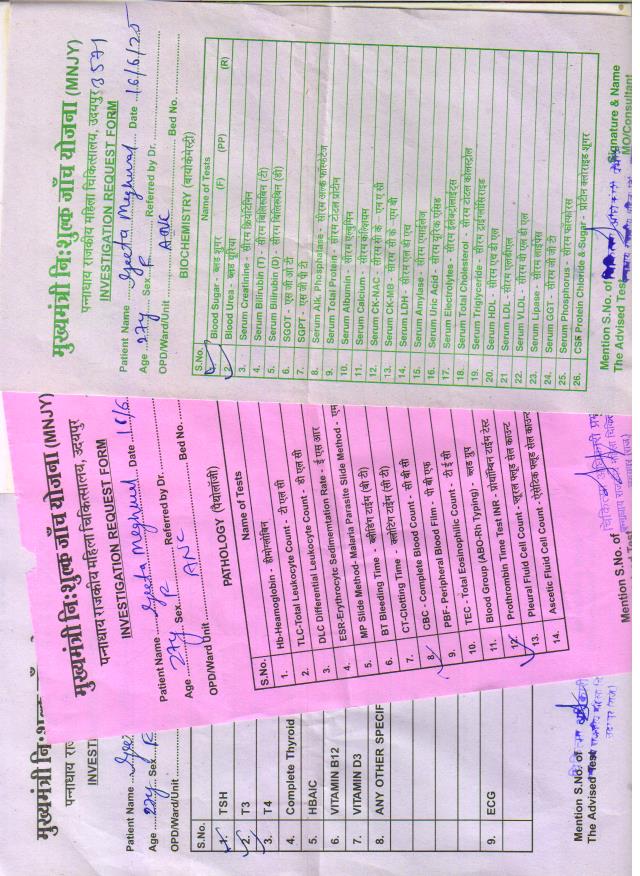 मुख्यमंत्री नि:शुल्क जाँच योजना (MNJY)
पन्नाधाय राजकीय महिला चिकित्सालय, उदयपुर 3571
INVESTIGATION REQUEST FORM
Patient Name Geeta Meghwal Date 16/6/25
Age 27y Sex F Referred by Dr.
OPD/Ward/Unit ANC Bed No.
BIOCHEMISTRY (बायोकेमेस्ट्री)
S.No. Name of Tests
1. Blood Sugar - ब्लड शुगर (F) (PP) (R)
2. Blood Urea - ब्लड यूरिया
3. Serum Creatinine - सीरम क्रियेटिनिन
4. Serum Bilirubin (T) - सीरम बिलिरूबिन (टी)
5. Serum Bilirubin (D) - सीरम बिलिरूबिन (डी)
6. SGOT - एस जी ओ टी
7. SGPT - एस जी पी टी
8. Serum Alk. Phosphatase - सीरम अल्क फॉस्फेटेज
9. Serum Total Protein - सीरम टोटल प्रोटीन
10. Serum Albumin - सीरम एल्बुमिन
11. Serum Calcium - सीरम कैल्शियम
12. Serum CK-NAC - सीरम सी के - एन ए सी
13. Serum CK-MB - सीरम सी के - एम बी
14. Serum LDH - सीरम एल डी एच
15. Serum Amylase - सीरम एमाईलेज
16. Serum Uric Acid - सीरम यूरिक एसिड
17. Serum Electrolytes - सीरम ईलेक्ट्रोलाईट्स
18. Serum Total Cholesterol - सीरम टोटल कोलस्ट्रोल
19. Serum Triglyceride - सीरम ट्राईग्लीसिराइड
20. Serum HDL - सीरम एच डी एल
21. Serum LDL - सीरम एलडीएल
22. Serum VLDL - सीरम वी एल डी एल
23. Serum Lipase - सीरम लाईपेस
24. Serum GGT - सीरम जी जी टी
25. Serum Phosphorus - सीरम फोस्फोरस
26. CSF Protein Chloride & Sugar - प्रोटीन क्लोराइड शुगर
Mention S.No. of
The Advised Test
Signature & Name
MO/Consultant
मुख्यमंत्री नि:शुल्क जाँच योजना (MNJY)
पन्नाधाय राजकीय महिला चिकित्सालय, उदयपुर
INVESTIGATION REQUEST FORM
Patient Name Geeta Meghwal Date 16/6
Age 27y Sex F Referred by Dr.
OPD/Ward Unit ANC Bed No.
PATHOLOGY (पैथोलॉजी)
S.No. Name of Tests
1. Hb-Heamoglobin - हीमोग्लोबिन
2. TLC-Total Leukocyte Count - टी एल सी
3. DLC Differential Leukocyte Count - डी एल सी
4. ESR-Erythrocytc Sedimerntation Rate - ई एस आर
5. MP Slide Method- Malaria Parasite Slide Method - एम
6. BT Bleeding Time - ब्लीडिंग टाईम (बी टी)
7. CT-Clotting Time - क्लोटिंग टाईम (सी टी)
8. CBC - Complete Blood Count - सी बी सी
9. PBF- Peripheral Blood Film - पी बी एफ
10. TEC - Total Eosinophilic Count - टी ई सी
11. Blood Group (ABO-Rh Typing) - ब्लड ग्रुप
12. Prothrombin Time Test INR - प्रोथोम्बिन टाईम टेस्ट
13. Pleural Fluid Cell Count - लूरल फ्लूड सेल काउन्ट
14. Ascetic Fluid Cell Count - ऐसेटिक फ्लूड सेल काउन्ट
Mention S.No. of
मुख्यमंत्री नि:शुल्क जाँ
पन्नाधाय राज
INVESTI
Patient Name Gee
Age 27y Sex F
OPD/Ward/Unit
S.No.
1. TSH
2. T3
3. T4
4. Complete Thyroid
5. HBAIC
6. VITAMIN B12
7. VITAMIN D3
8. ANY OTHER SPECIF
9. ECG
Mention S.No. of
The Advised Test